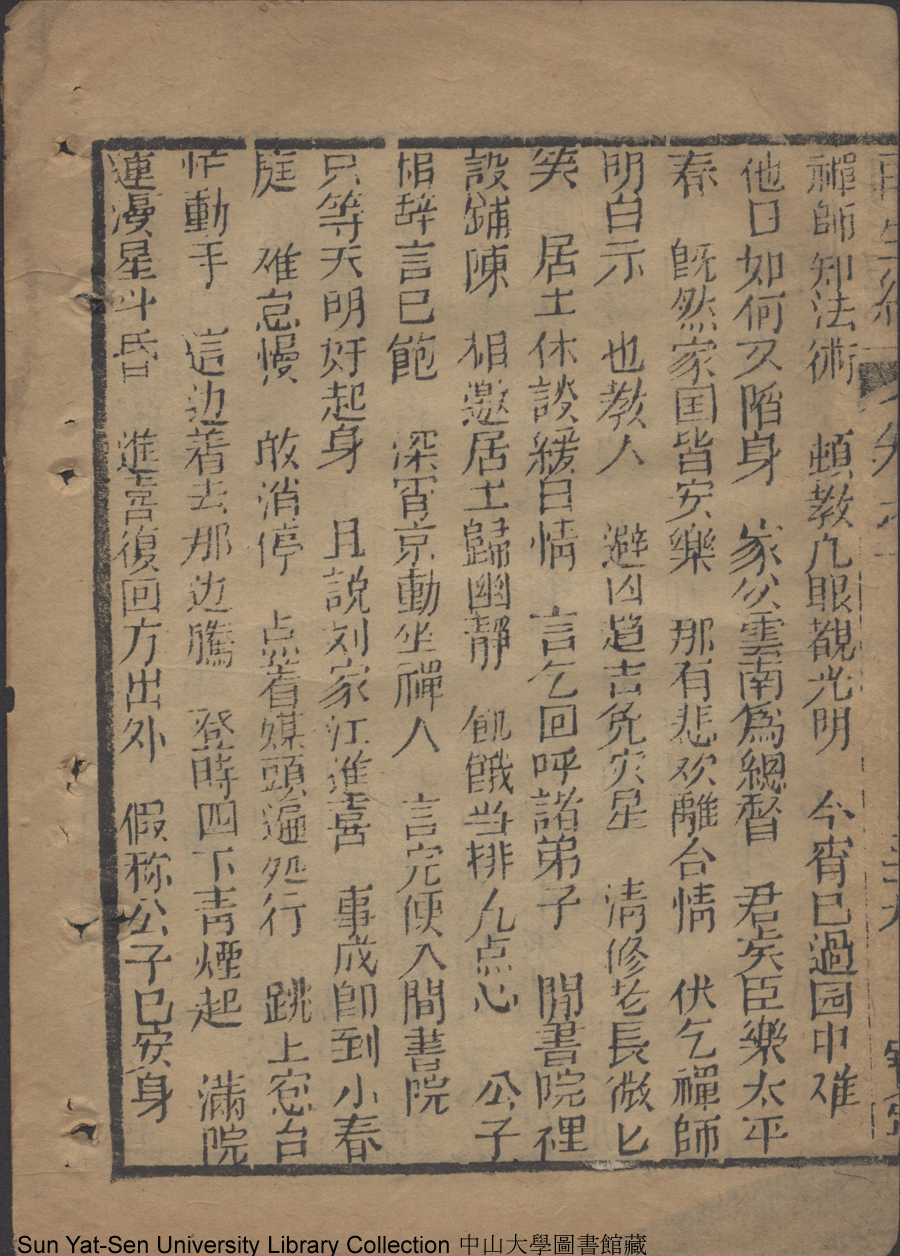 禪師知法術　頓教凢眼覩光明　今宵已過园中难
他日如何又陷身　家公雲南為總督　君矣臣樂太平
春　既然家国皆安樂　那有悲欢離合情　伏乞禪師
明白示　也教人　避凶趋吉免灾星　清修老長微匕
笑　居士休談緩日情　言乞回呼諸弟子　閒書院裡
設鋪陳　相邀居士歸幽靜　飢餓当排凢点心　公子
相辞言已飽　深宵京動坐禪人　言完便入間書院
只等天明好起身　且說刘家江進喜　事成即到小春
庭　难怠慢　敢消停　点着媒頭遍処行　跳上窓台
忙動手　這边着去那边騰　登時四下青煙起　滿院
連漫星斗昏　進喜復回方出外　假称公子已安身
Sun Yat-Sen University Library Collection 中山大學圖書館藏